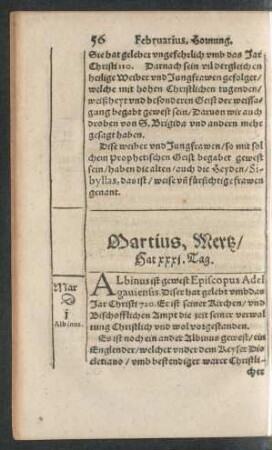 56 Februarius, Hornung.
Sie hat gelebet vngefehrlich vmb das Jar
Christi 110. Darnach sein vil dergleichen
heilige Weiber vnd Jungfrawen gefolget/
welche mit hohen Christlichen tugenden/
weißheyt vnd besonderen Geist der weissa-
gung begabt gewest sein/Daruon wir auch
droben von S. Brigida vnd andern mehr
gesagt haben.
Dise weiber vnd Jungfrawen/so mit sol
chem Prophetischen Geist begabet gewest
sein/haben die alten/auch die Heyden/Si-
byllas, das ist/weise vñ fürsichtige frawen
genant.
Martius, Mertz/
Hat xxxj. Tag.
Mar
D
j
Albinus.
ALbinus ist gewest Episcopus Adel
gauiensis. Diser hat gelebt vmb das
Jar Christi 720. Er ist seiner Kirchen/vnd
Bischofflichen Ampt die zeit seiner verwal
tung Christlich vnd wol vorgestanden.
Es ist noch ein ander Albinus gewest/ein
Englender/welcher vnder dem Keyser Dio
cletiano/vmb bestendiger warer Christli-
cher